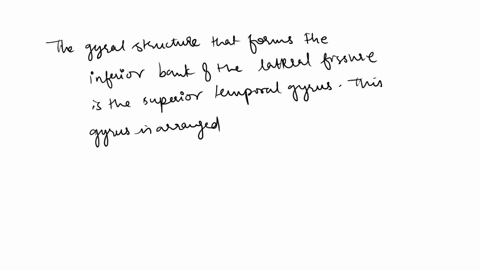 The gyral structure that forms the
inferior bank of the lateral fissure
is the superior temporal gyrus. This
gyrus is arranged